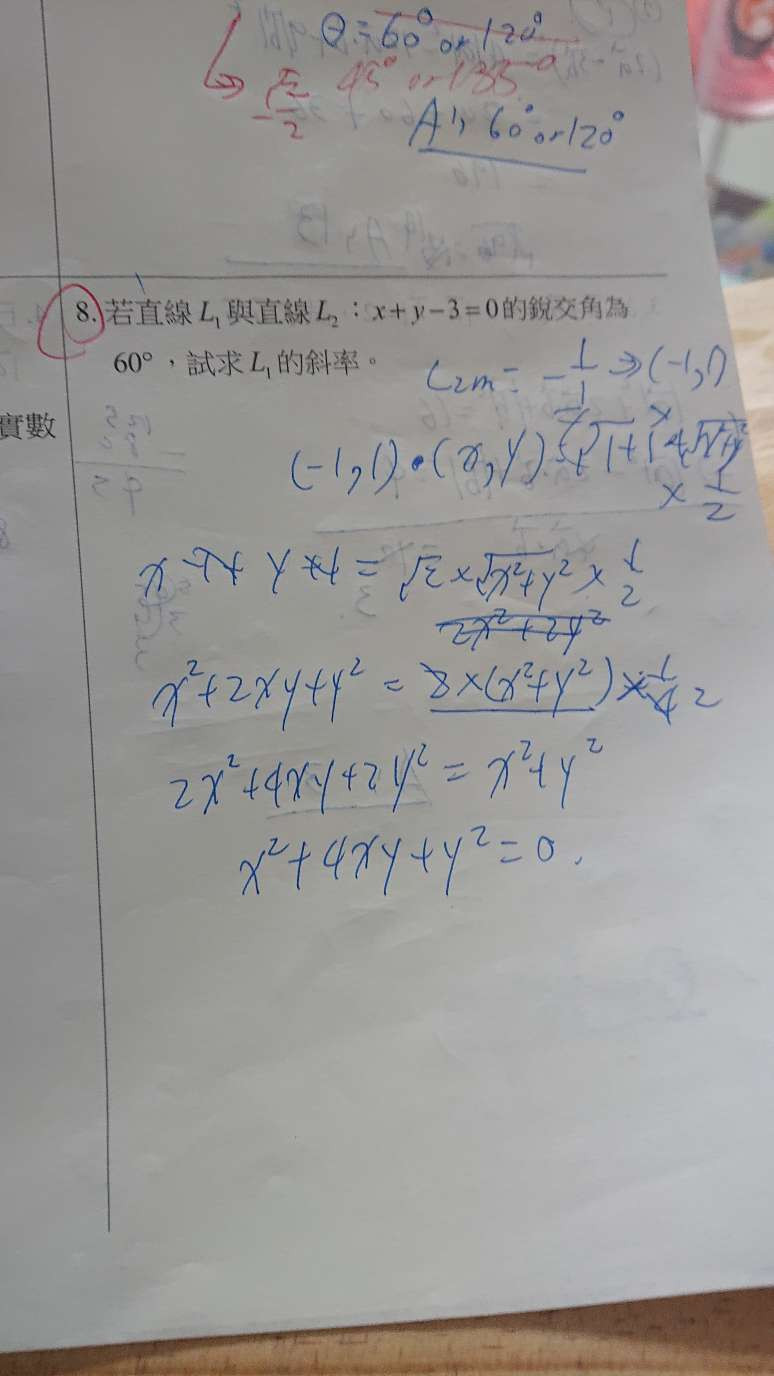 θ = 60° or 120°
-√2/2 45° or 135°
A: 60° or 120°
8. 若直線 L₁ 與直線 L₂：x + y − 3 = 0 的銳交角為
60°，試求 L₁ 的斜率。
L2m = -1/1 ⇒ (-1,1)
實數
(-1,1)·(x,y)
× 1/2
x² + 2xy + y² = 2 × (x² + y²) ×
2x² + 4xy + 2y² = x² + y²
x² + 4xy + y² = 0.